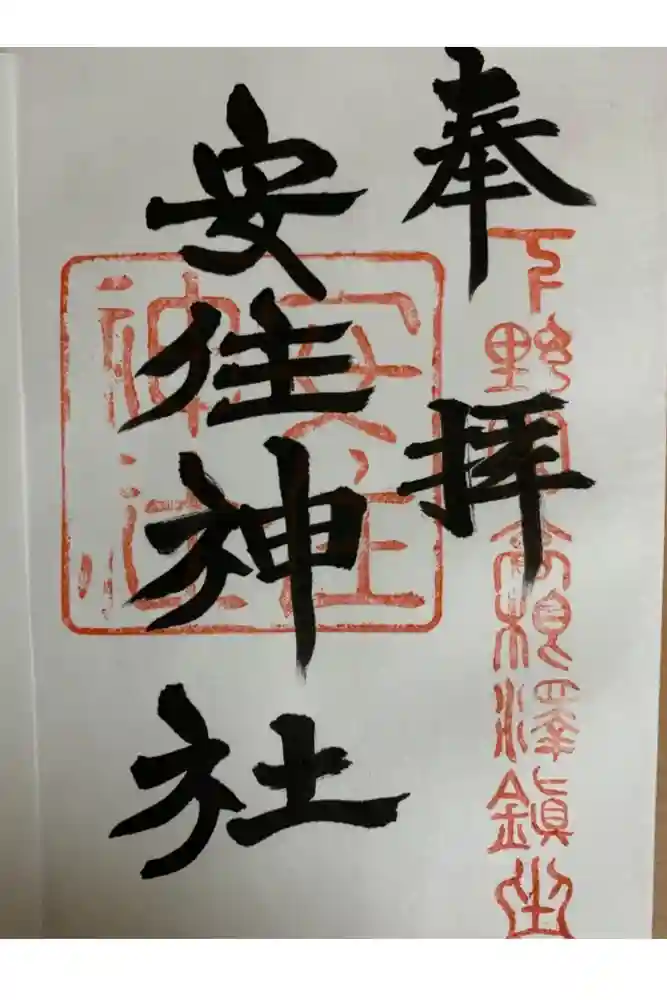 奉拝
下野国高根澤鎮座
安住神社
安住神社